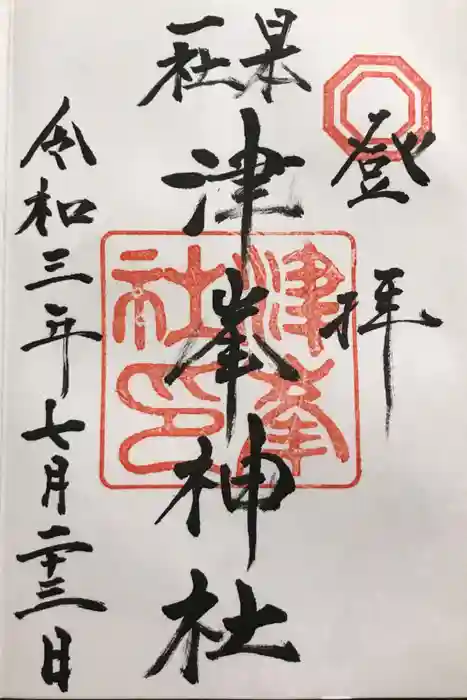 登拝
県社
津峯神社
津峯
社印
令和三年七月二十三日